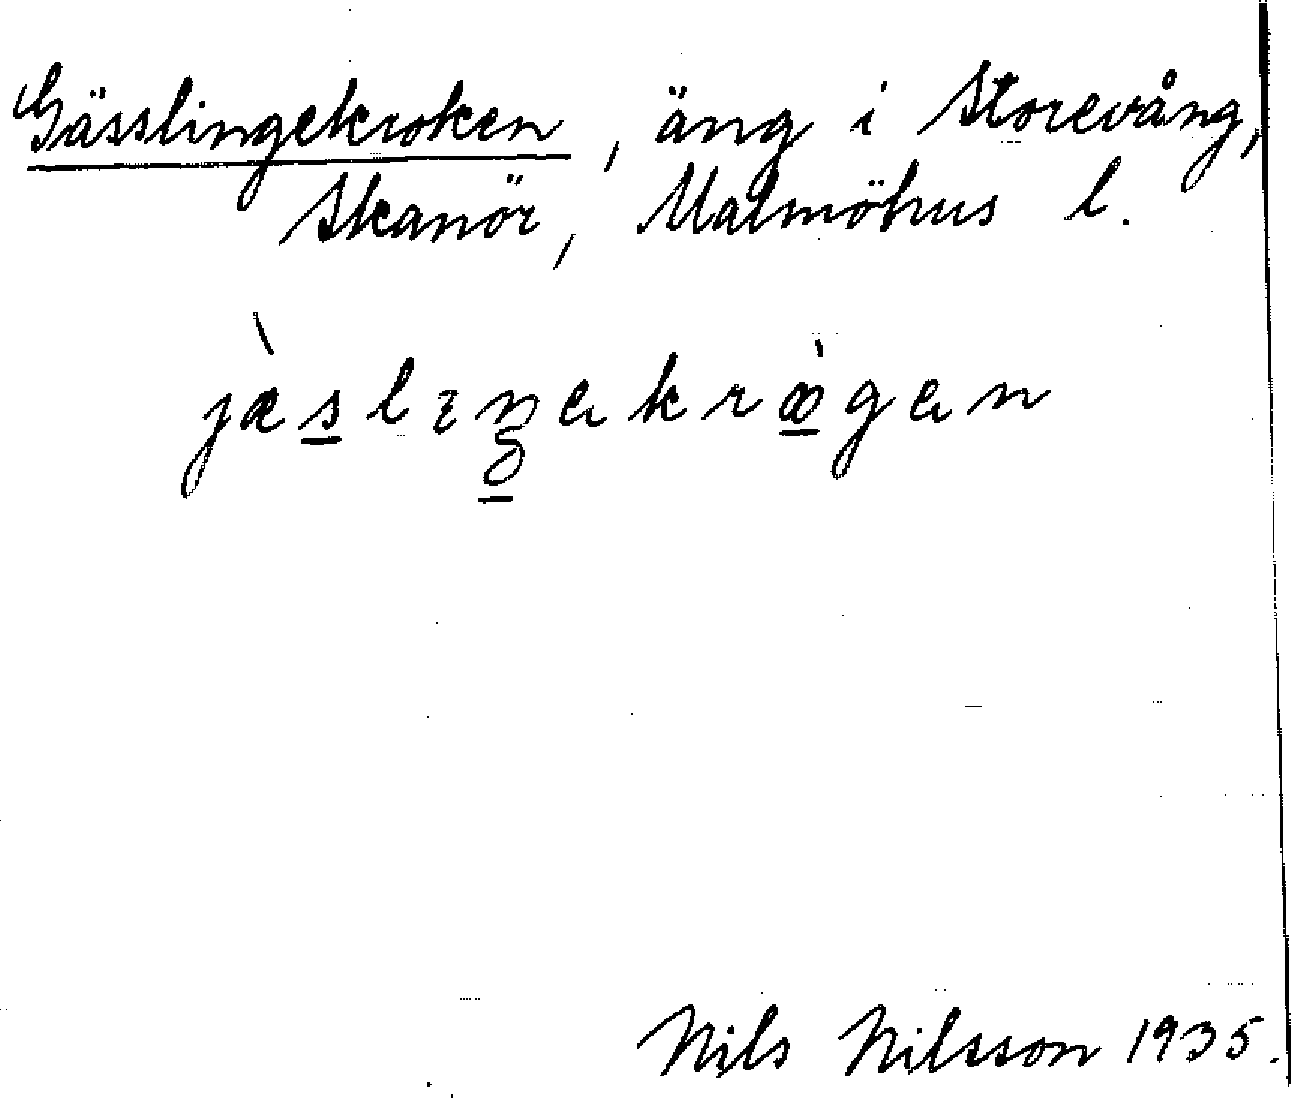 Gässlingekroken, äng i Storevång,
Skanör, Malmöhus l.
jæ̀slıŋakrꝏ̀gan
Nils Nilsson 1935.